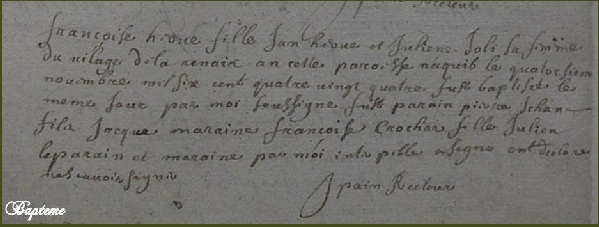 francoise hervé fille Jan hervé et Juliene Joli sa fmme
du vilage de la renaie an cette paroisse naquit le quatorsiem
novembre mil six cent quatre vingt quatre fust baptisée le
meme jour par moi soussigné fust parain pierre Jehan
fils Jacque maraine francoise Crochar fille Julien
le parain et maraine par moi interpellé a signé ont declaré
ne scavoir signé
Spain Recteur
Bapteme